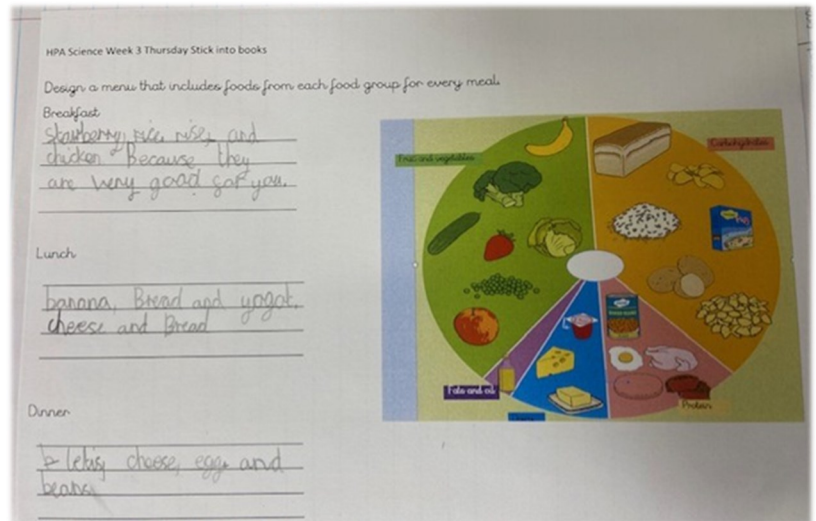 HPA Science Week 3 Thursday Stick into books
Design a menu that includes foods from each food group for every meal.
Breakfast
Strawberry, rice, and
chicken Because they
are very good for you.
Lunch
banana, Bread and yogat,
cheese and Bread
Dinner
cheese, egg, and
beans
Fruit and vegetables
Carbohydrates
Fats and oil
Protein